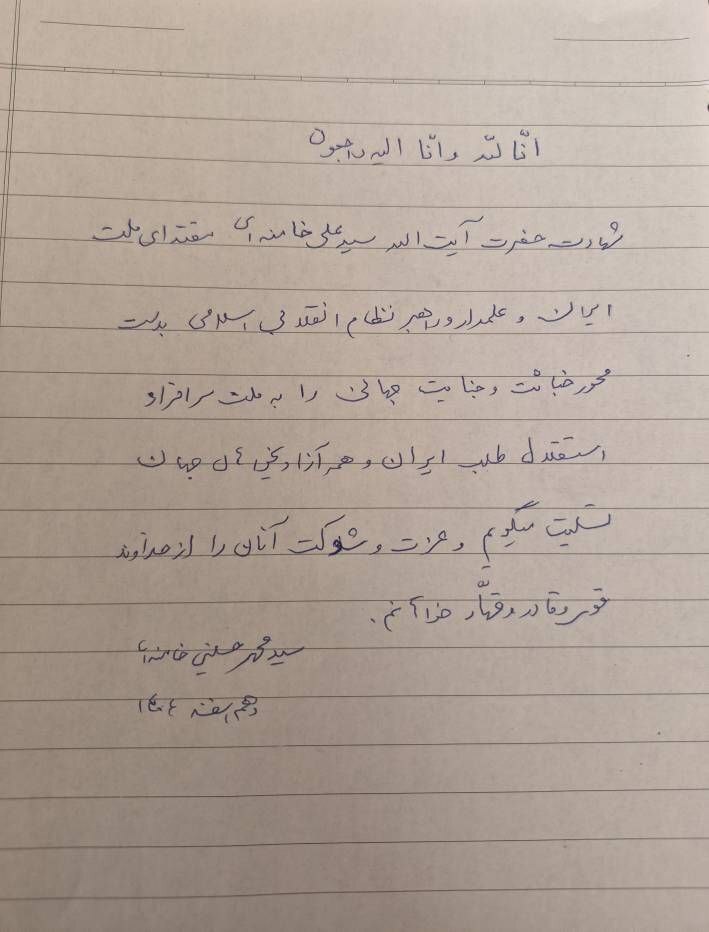 انّا للّه وانّا الیه راجعون
شهادت حضرت آیت الله سید علی خامنه ای مقتدای ملت
ایران و علمدار و راهبر نظام انقلابی اسلامی بدست
محور خباثت و جنایت جهانی را به ملت سرافراز و
استقلال طلب ایران و همه آزادیخواهان جهان
تسلیت میگویم و عزت و شوکت آنان را از خداوند
قوی و قادر و قهّار خواهانم.
سید محمد حسینی خامنه‌ای
دهم اسفند ۱۴۰۴